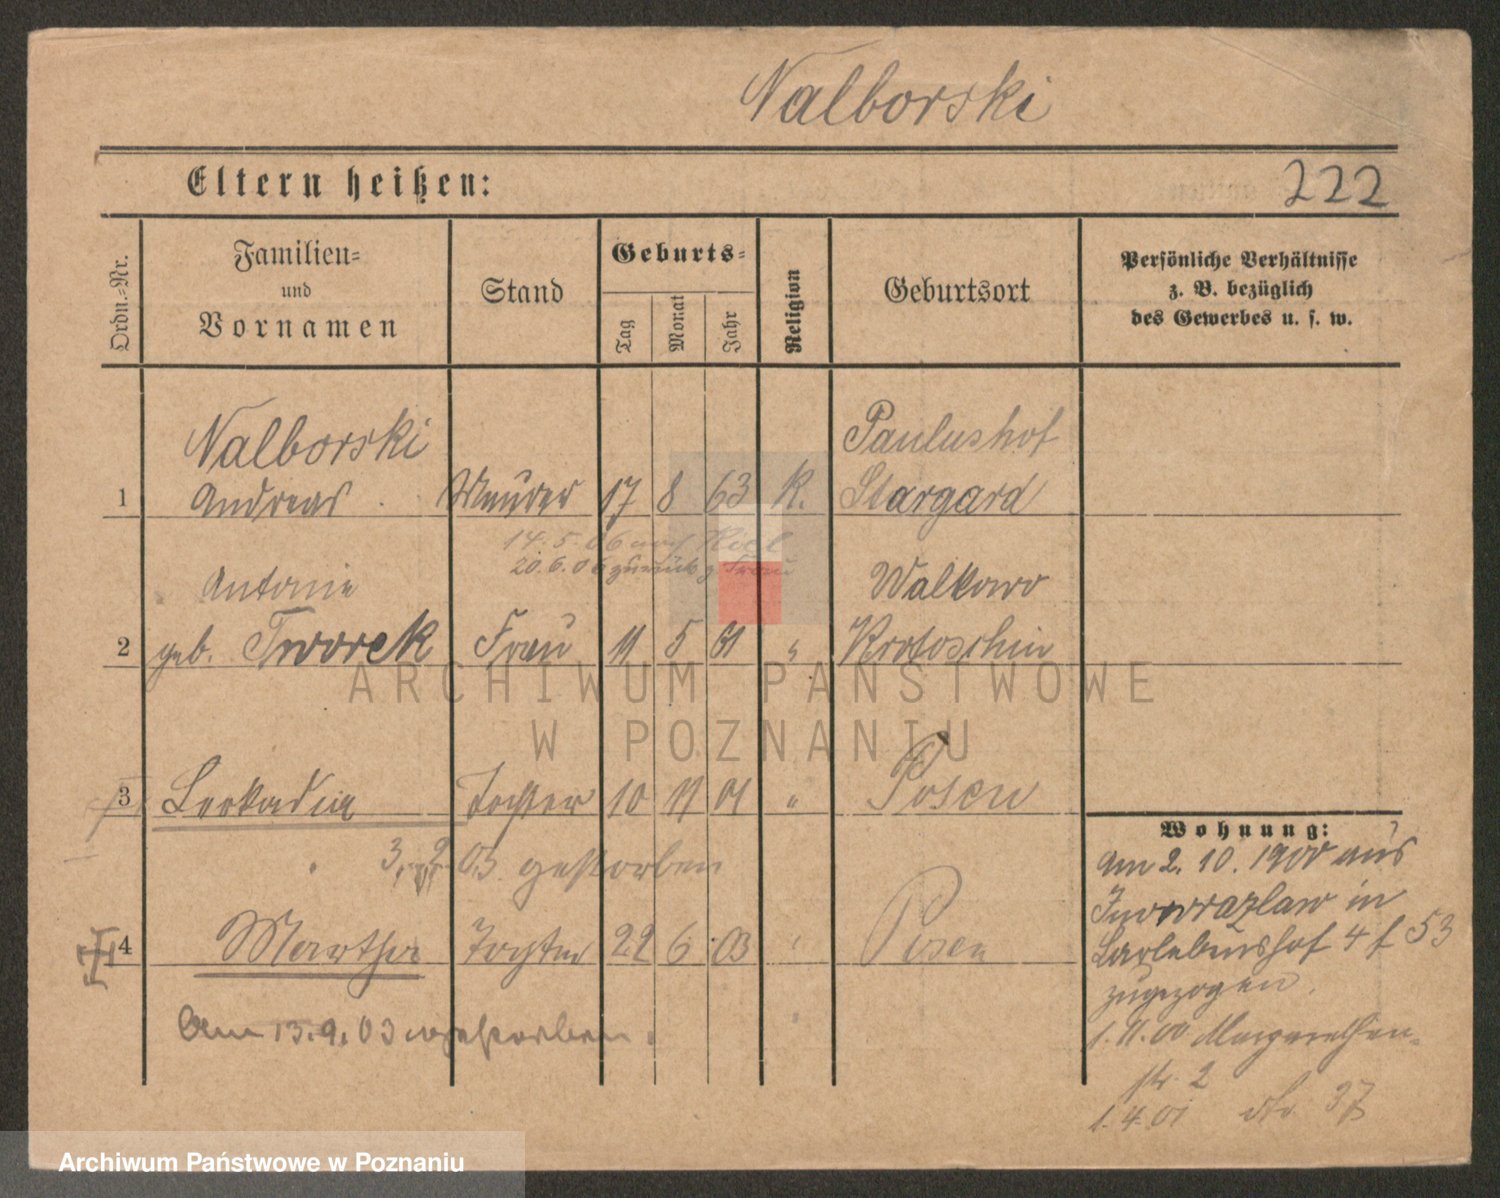 Nalborski
Eltern heißen:
222
Ordn.-Nr.
Familien-
und
Vornamen
Stand
Geburts-
Tag
Monat
Jahr
Religion
Geburtsort
Persönliche Verhältnisse
z. B. bezüglich
des Gewerbes u. s. w.
Nalborski
Paulushof
1 Andreas Maurer 17 8 63 K. Stargard
14.5.06 nach Kiel
20.6.06 zurück z. Frau
Antonie Walkowo
2 geb. Tworek Frau 11 5 61 " Krotoschin
ARCHIWUM PAŃSTWOWE
W POZNANIU
3 Leokadia Tochter 10 11 01 " Posen
3. 2. 03 gestorben
4 Martha Tochter 22 6 03 " Posen
Am 13.9.03 gestorben.
Wohnung:
Am 2. 10. 1900 aus
Inowrazlaw in
4 53
zugezogen.
1.11.00 Margarethen-
str. 2
1.4.01 dto 37
Archiwum Państwowe w Poznaniu